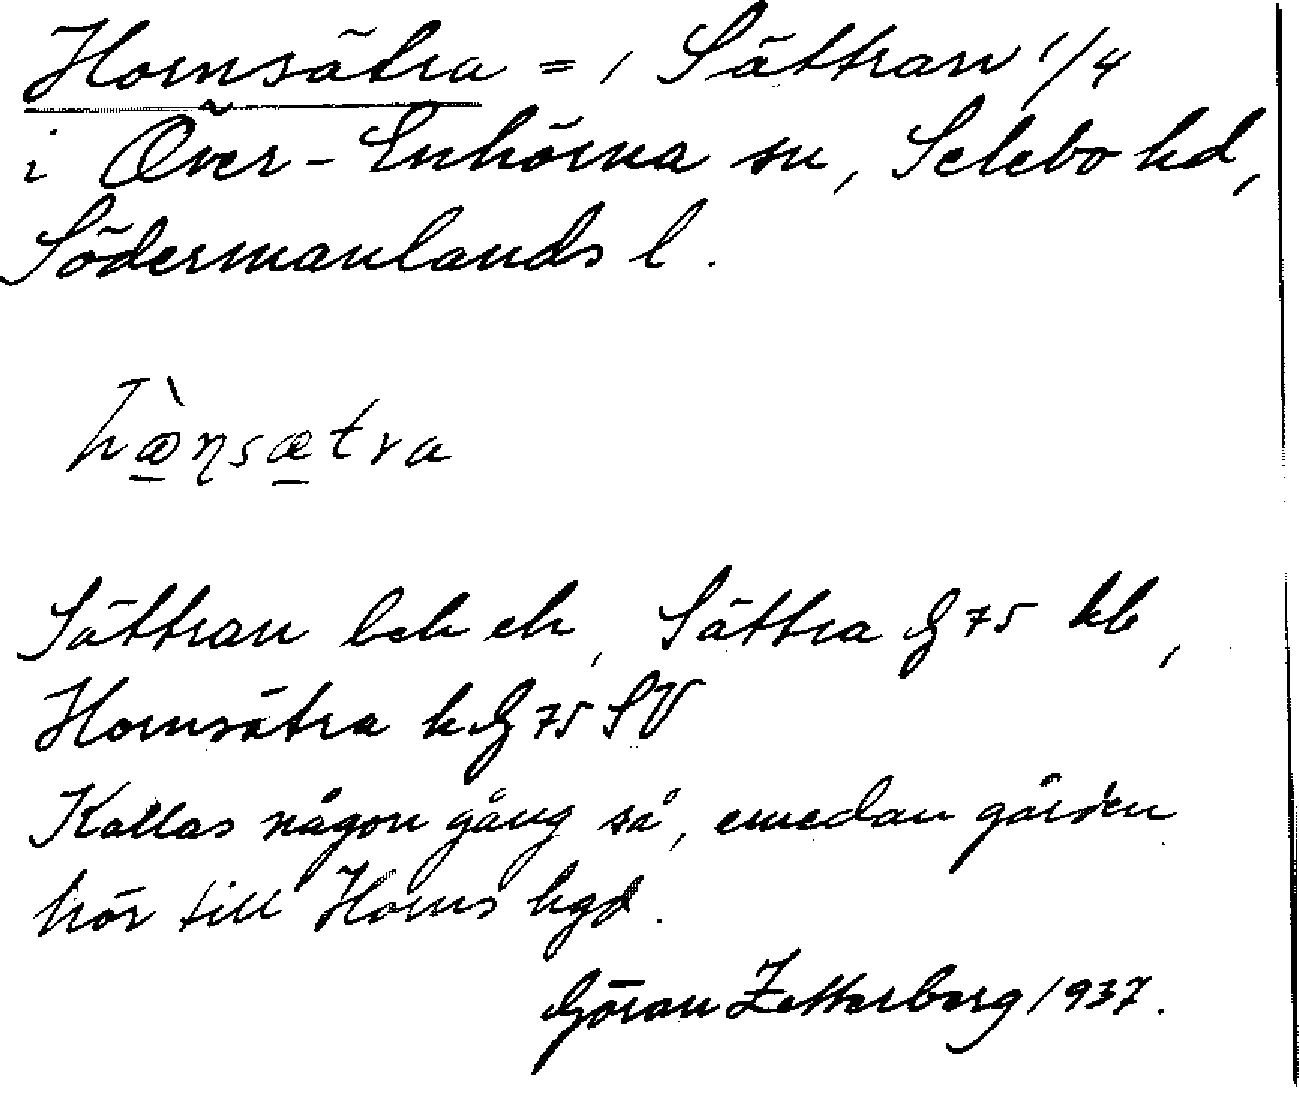 Hornsätra = , Sättran 1/4
i Över-Enhörna sn, Selebo hd,
Södermanlands l.
hæ̀ɳsætra
Sättran beb eh, Sättra G 75 kb,
Hornsätra k G 75 SV
Kallas någon gång så, emedan gården
hör till Horns bgd.
Göran Zetterberg 1937.